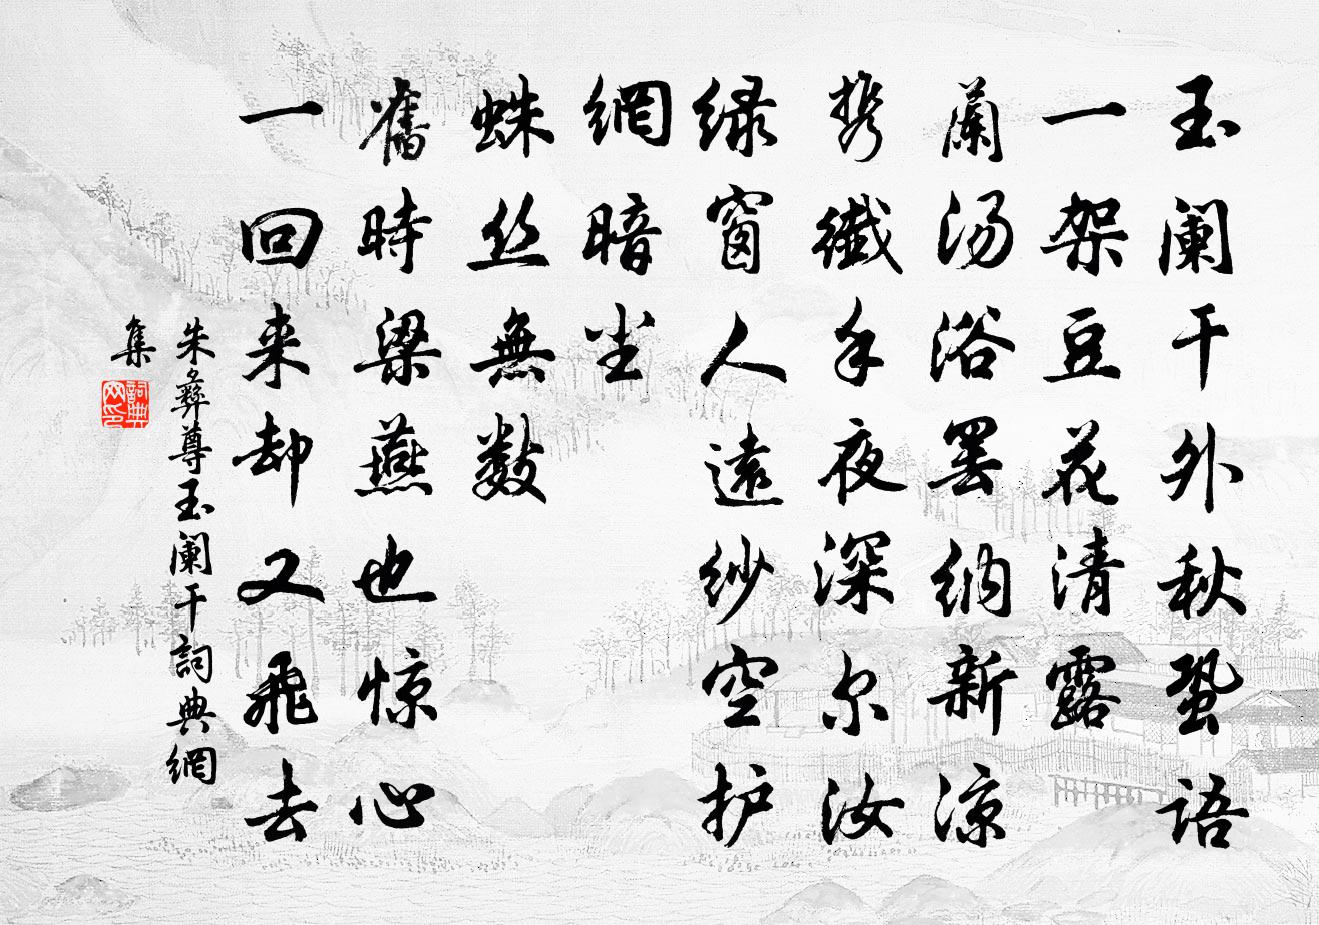 玉阑干外秋蛩语
一架豆花清露
蘭汤浴罢纳新凉
携纖手夜深尔汝
绿窗人遠纱空护
網暗尘
蛛丝無数
舊時梁燕也惊心
一回来却又飛去
朱彝尊玉阑干詞典網
集
詞典
网印